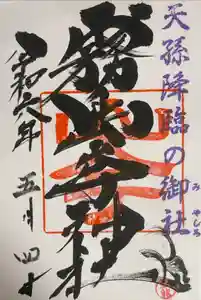 天孫降臨の御社
み やしろ
霧島岑神社
令和六年 五月四日